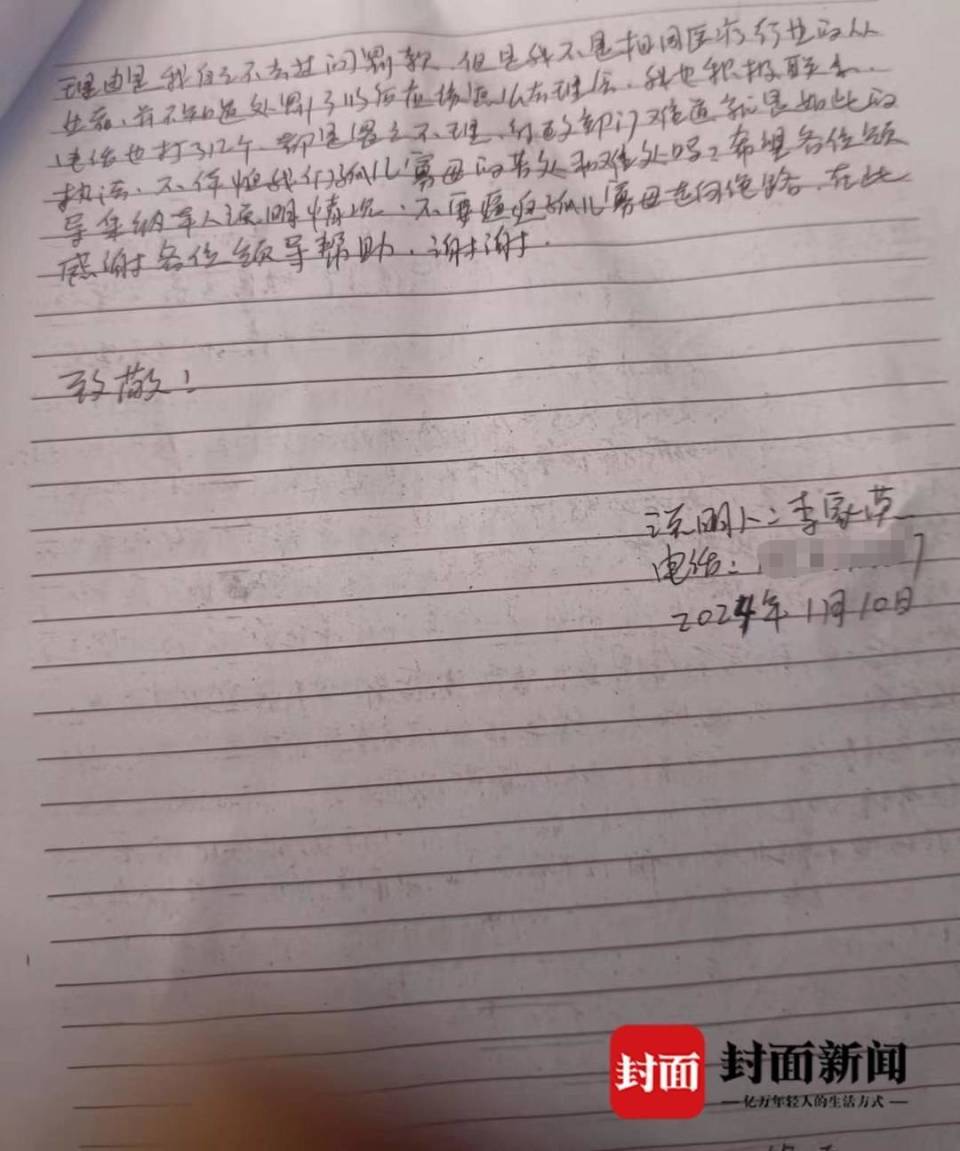 理由是我们不去过问罚款,但是我不是相同医疗行业的从
业者,并不知道处罚了以后应该怎么去理会,我也积极联系,
电话也打了12个,都是置之不理,行政部门难道就是如此的
执法,不体恤我们孤儿寡母的苦处和难处吗?希望各位领
导采纳本人说明情况,不要逼迫孤儿寡母走向绝路,在此
感谢各位领导帮助,谢谢.
致敬!
说明人:李家英
电话: 7
2024年11月10日
封面 封面新闻
亿万年轻人的生活方式